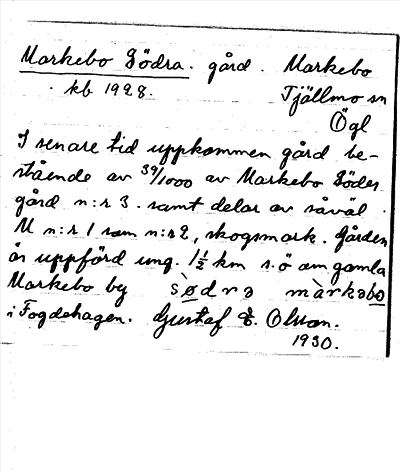 Markebo Södra. gård. Markebo
kb 1928. Tjällmo sn
Ögl
I senare tid uppkommen gård be-
stående av 39/1000 av Markebo Söder
gård n:r 3. samt delar av såväl
M n:r 1 som n:r 2, skogsmark. Gården
är uppförd ung. 1½ km s.ö om gamla
Markebo by sødrə màrkəbo
i Fogdehagen. Gustaf E. Olsson.
1930.